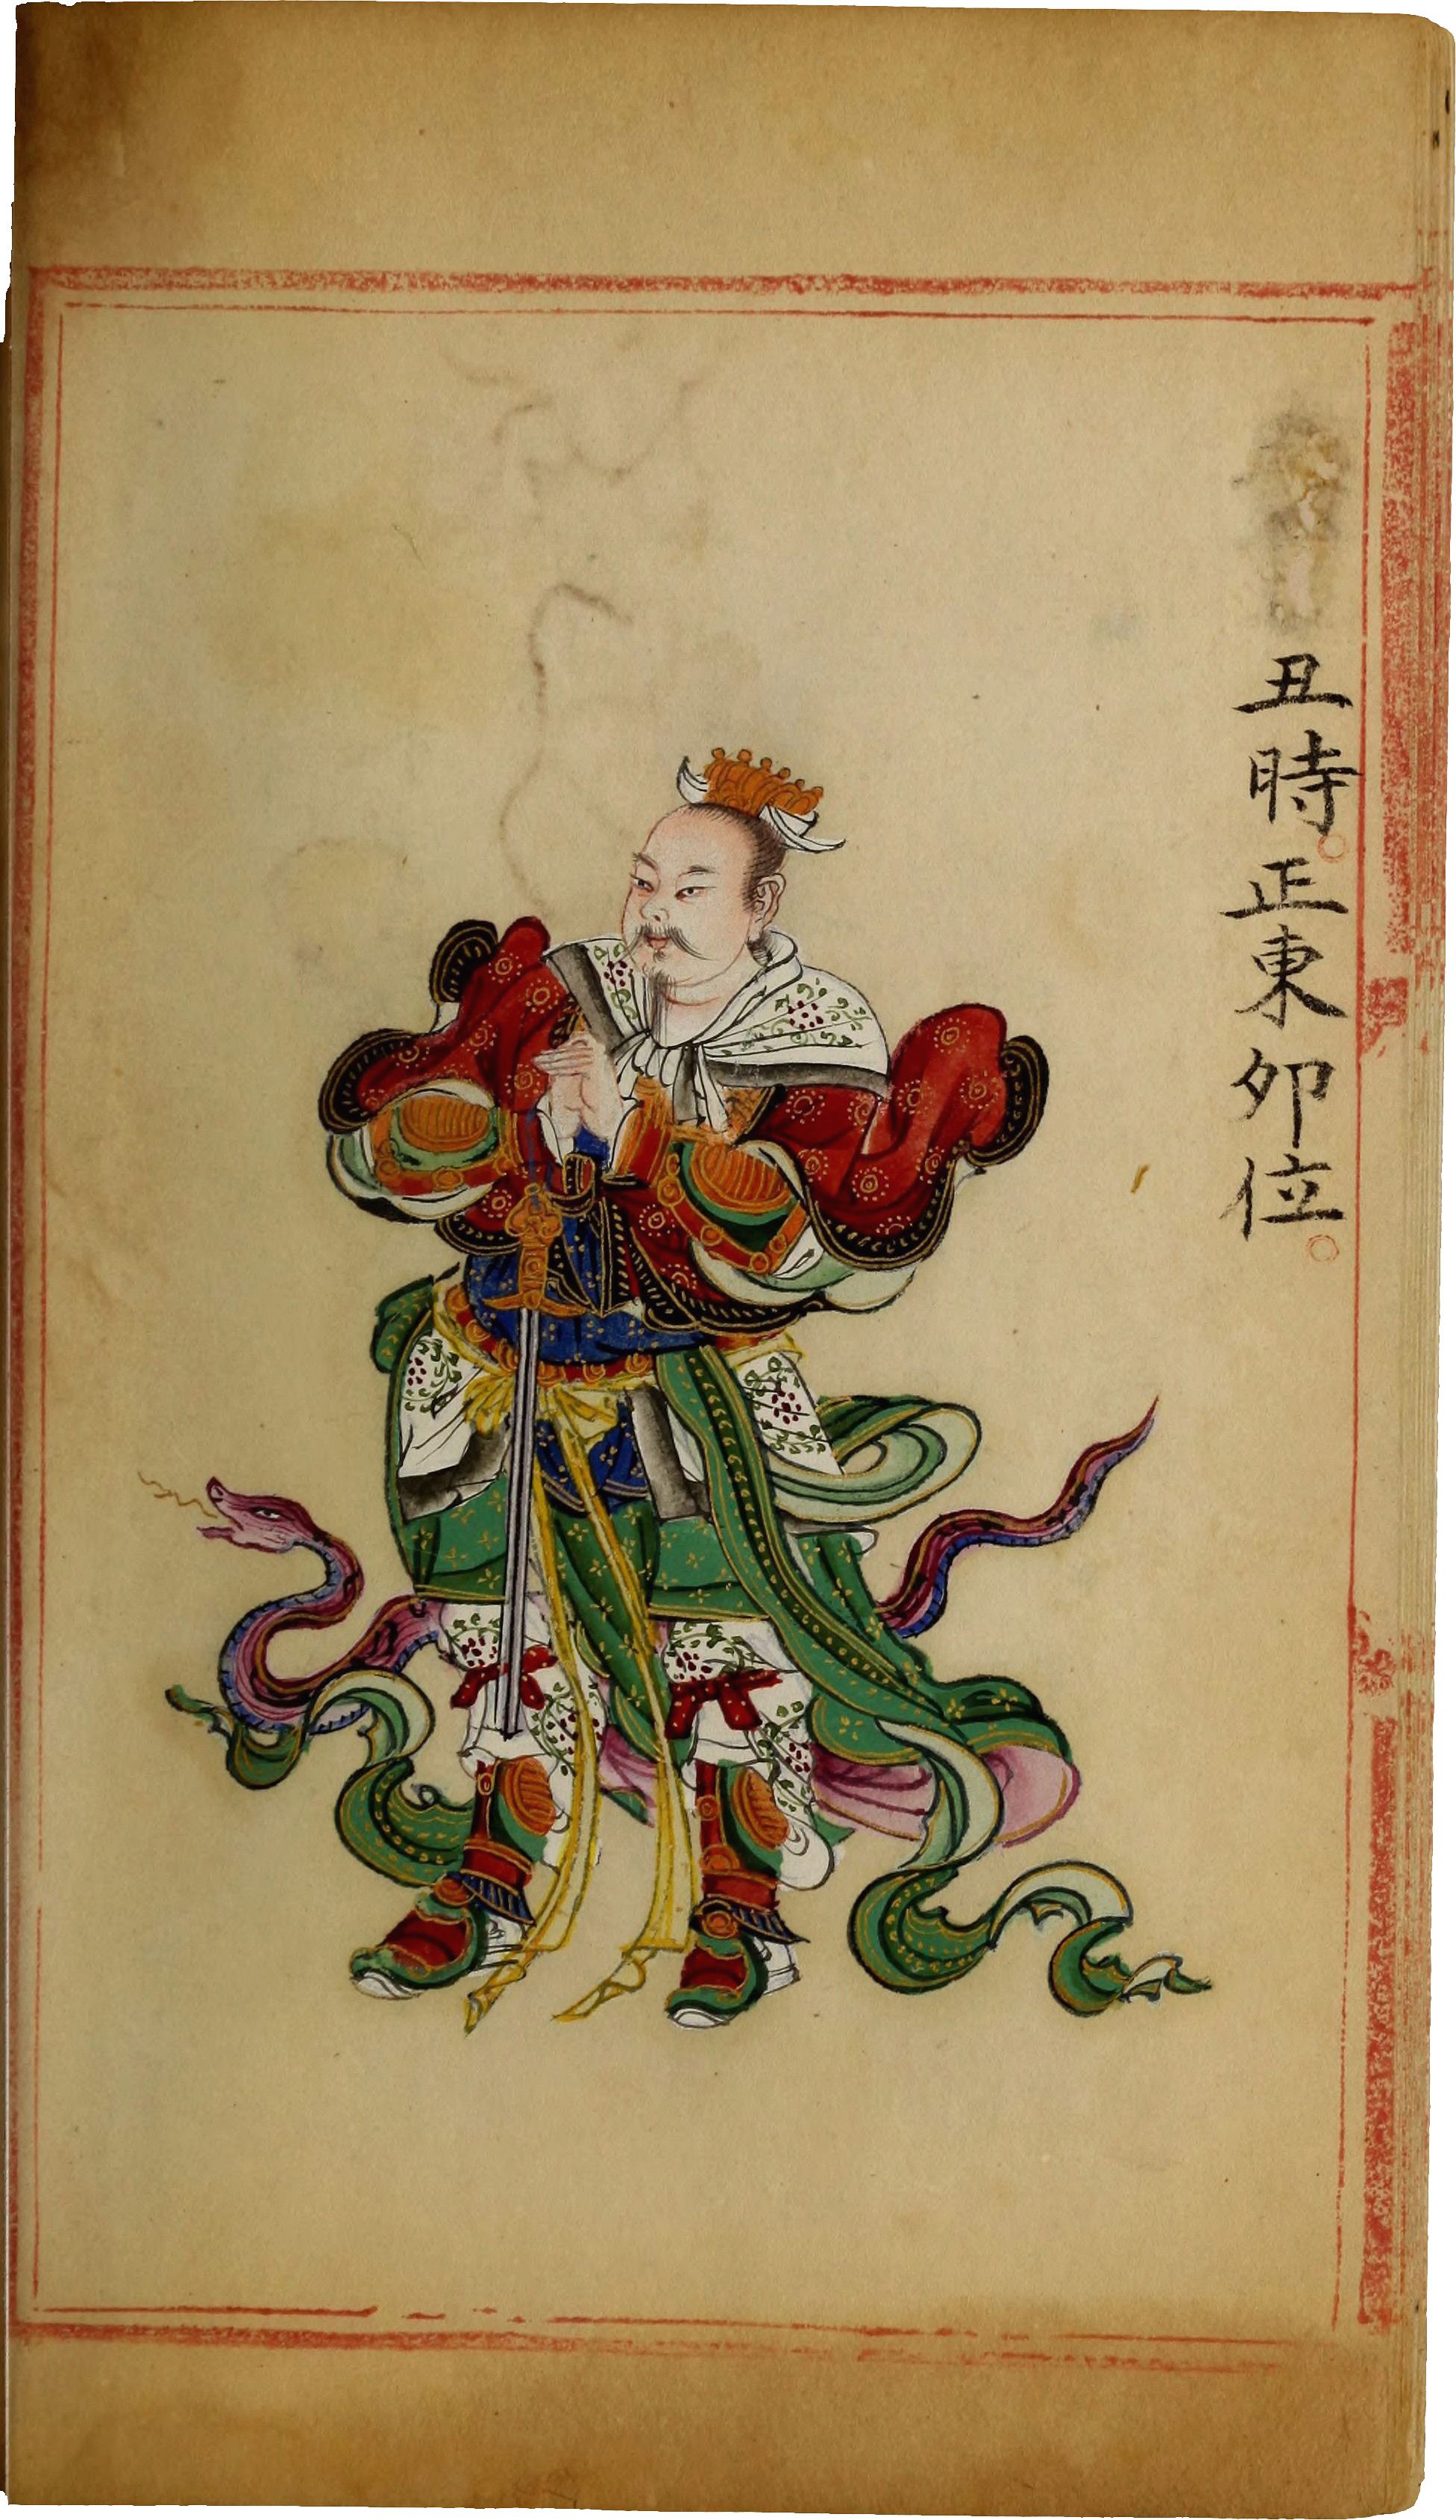 丑時。正東卯位。